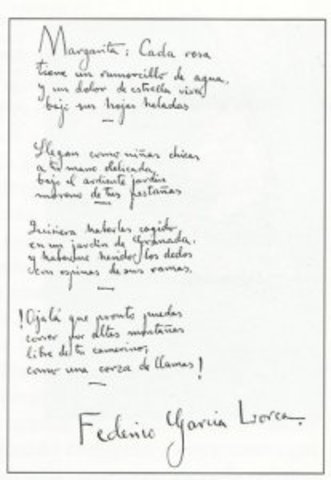 Margarita: Cada rosa
tiene un rumorcillo de agua,
y un dolor de estrella viva
bajo sus hojas heladas
Llegan como niñas chicas
a tu mano delicada,
bajo el ardiente jardín
moreno de tus pestañas
Quisiera haberlas cogido
en un jardín de Granada,
y haberme herido los dedos
con espinas de sus ramas.
¡Ojalá que pronto puedas
correr por altas montañas
libre de tu camerino,
como una corza de llamas!
Federico García Lorca.